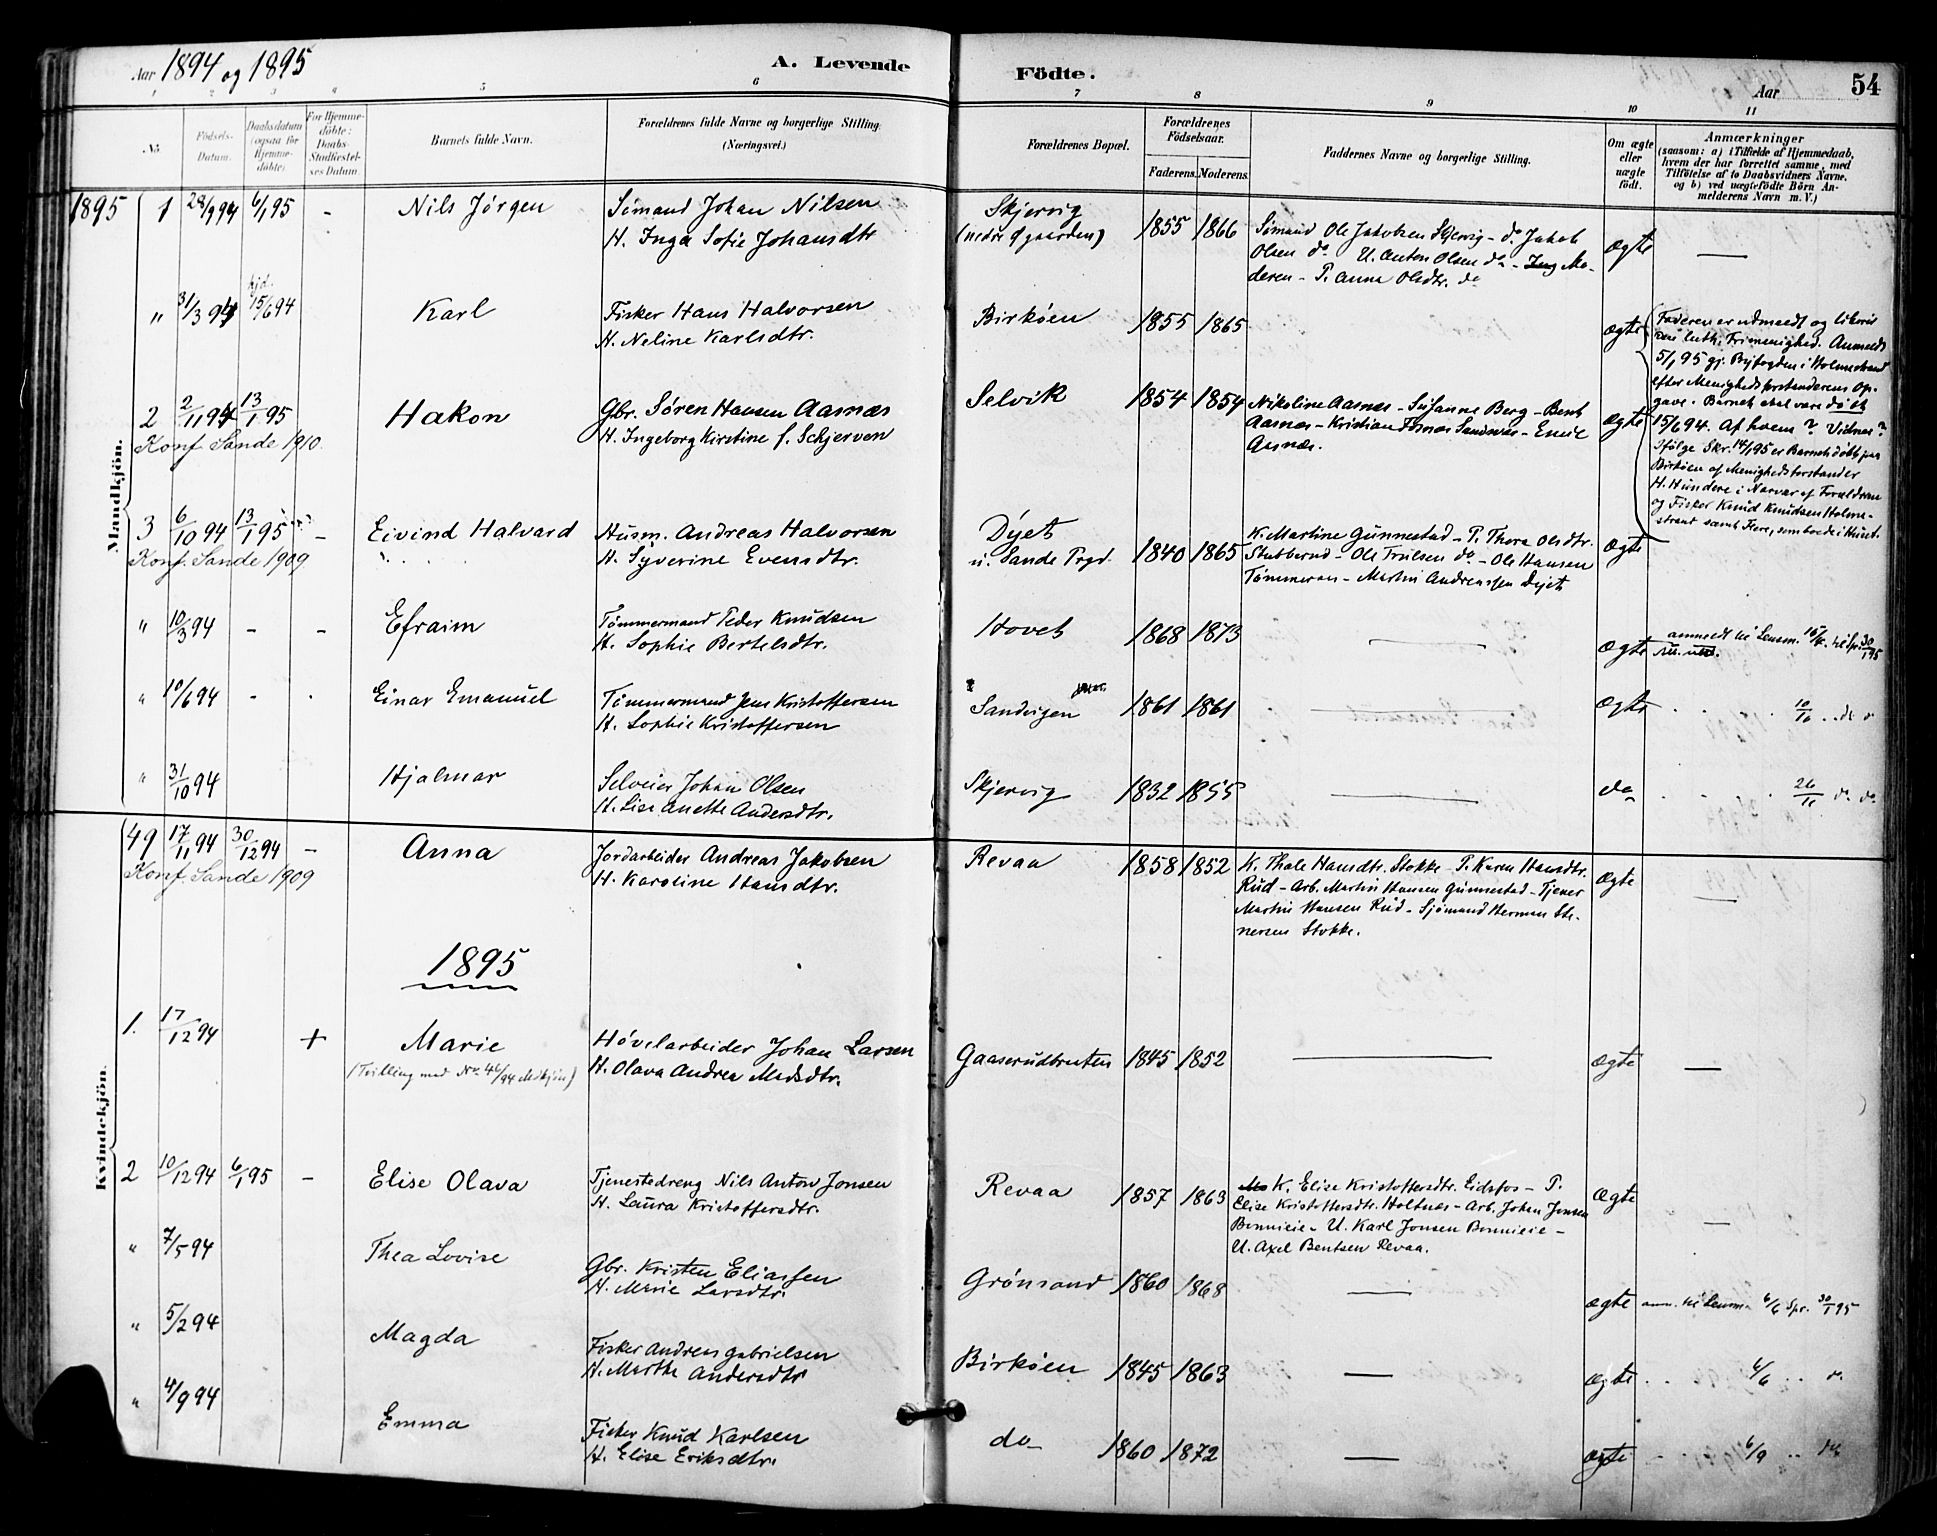 Aar 1894 og 1895
A. Levende Födte.
Aar
54
1 2 3 4 5 6 7 8 9 10 11
No
Födsels-Datum.
Daabsdatum (ogsaa for Hjemme-döbte)
For Hjemme-döbte: Daabs-Stadfæstel-ses Datum.
Barnets fulde Navn.
Forældrenes fulde Navne og borgerlige Stilling. (Næringsvei.)
Forældrenes Bopæl.
Forældrenes Födselsaar.
Faderens. Moderens.
Faddernes Navne og borgerlige Stilling.
Om ægte eller uægte födt.
Anmærkninger
(saasom: a) i Tilfælde af Hjemmedaab,
hvem der har forrettet samme, med
Tilföielse af to Daabsvidners Navne,
og b) ved uægtefödte Börn An-
melderens Navn m. V.)
Mandkjön.
1895 1 28/9 94 6/1 95 - Nils Jörgen
Sömand Johan Nilsen
H. Inga Sofie Johansdtr
Skjervig
(nedre gaarden)
1855 1866
Sömand Ole Jakobsen Skjervig - do Jakob
Olsen do U. Anton Olsen do - Mo-
deren - P. Anna Olsdtr. do
ægte —
" 31/3 94 hjd. 15/6 94 Karl
Fisker Hans Halvorsen
H. Neline Karlsdtr.
Birköen 1855 1865
ægte
Faderen er udmeldt og tilhörer
luth. Frimenighed. Anmeldt
5/1 95 gj. Byfogden i Holmestrand
efter Menighedsforstanderens Op-
gave. Barnet skal være döbt
15/6 94. Af hvem? Vidner?
Ifölge Skr. 14/1 95 er Barnet döbt paa
Birköen af Menighedsforstander
H. Hundere i Nærvær af Forældrene
og Fisker Knud Knudsen Holme-
strand samt Flere, som bode i Huset.
2 2/11 94 13/1 95 Hakon
Konf. Sande 1910.
Gbr. Sören Hansen Aasnæs
H. Ingeborg Kirstine f. Schjerven
Selvik 1854 1854
Nikoline Aasnæs - Susanne Berg - Bent
Aasnæs - Kristian Fosnæs Sandsvær - Emil
Aasnæs.
ægte
3 6/10 94 13/1 95 - Eivind Halvard
Konf. Sande 1909
Husm. Andreas Halvorsen
H. Syverine Evensdtr.
Döjet
u. Sande Prgd.
1840 1865
K. Martine Gunnestad - P. Thora Olsdtr.
Stubberud - Ole Trulsen do - Ole Hansen
Tömmeraas - Martin Andreassen Döjet
ægte
" 10/3 94 - - Efraim
Tömmermand Peder Knudsen
H. Sophie Bertelsdtr.
Hovet 1868 1873 —
ægte anmeldt til Lensm. 15/4. til Spr. 30/1 95
" 10/6 94 - . Einar Emanuel
Tömmermand Jens Kristoffersen
H. Sophie Kristoffersen
Sandvigen 1861 1861
ægte . . . 10/10 .. do
" 31/10 94 Hjalmar
Selveier Johan Olsen
H. Lise Anette Andersdtr.
Skjervig 1832 1855 —
do . . . 26/11 do do
Kvindekjön.
49 17/11 94 30/12 94 - Anna
Konf. Sande 1909
Jordarbeider Andreas Jakobsen
H. Karoline Hansdtr.
Revaa 1858 1852
K. Thale Hansdtr. Stokke - P. Karen Hansdtr.
Rud - Arb. Martin Hansen Gunnestad - Tjener
Martin Hansen Rud - Sjömand Herman Ste-
nersen Stokke.
ægte —
1895
1. 17/12 94 + Marie
(Tvilling med No. 46/94 Mdkjön)
Hövelarbeider Johan Larsen
H. Olava Andrea Madsdtr.
Gaaserudbraaten 1845 1852 —
ægte —
2 10/12 94 6/1 95 - Elise Olava
Tjenestedreng Nils Anton Jonsen
H. Laura Kristoffersdtr.
Revaa 1857 1863
K. Elise Kristoffersdtr. Eidsfos - P.
Elise Kristoffersdtr. Holtnæs - Arb. Johan Jonsen
Bonnieie - U. Karl Jonsen Bonnieie -
U. Axel Bentsen Revaa.
ægte —
" 7/5 94 Thea Lovise
Gbr. Kristen Eliassen
H. Marie Larsdtr.
Grönsand 1860 1868 —
ægte anm. til Lensm. 6/6 Spr. 30/1 95
" 5/2 94 Magda
Fisker Andreas Gabrielsen
H. Marthe Andersdtr
Birköen 1845 1863 —
ægte .. 6/6 .. do
" 4/9 94 Emma
Fisker Knud Karlsen
H. Elise Eriksdtr.
do 1860 1872 —
ægte .. 6/9 .. do